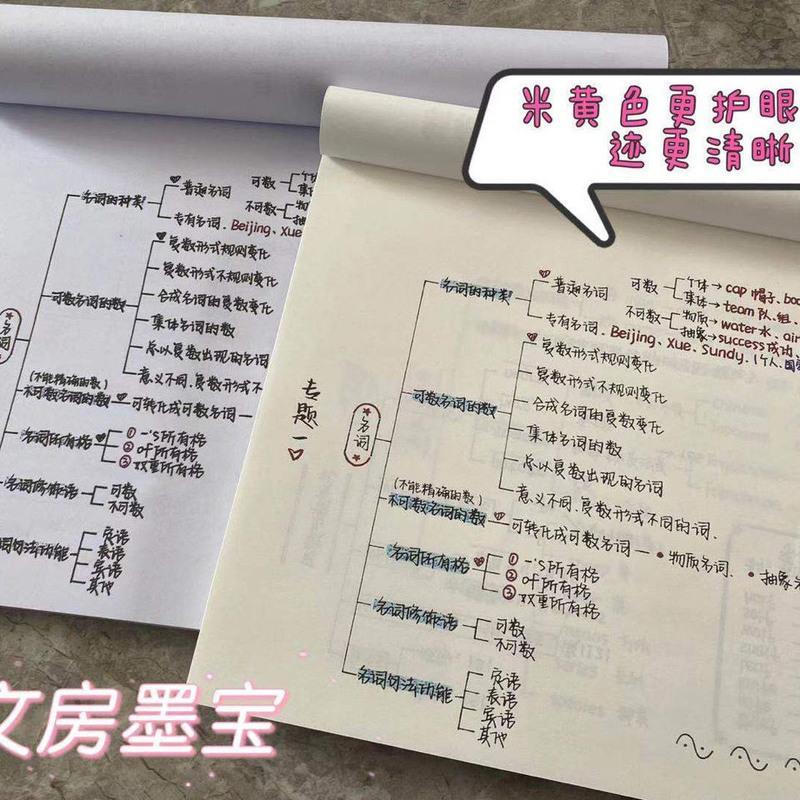 米黄色更护眼
迹更清晰
名词的种类
普通名词
可数
个体
集体
不可数
物质
抽象
专有名词. Beijing、Xue
可数名词的数
复数形式规则变化
复数形式不规则变化
合成名词的复数变化
集体名词的数
总以复数出现的名词
意义不同.复数形式不
名词
(不能精确的数)
不可数名词的数
可转化成可数名词
名词所有格
① -'s所有格
② of所有格
③ 双重所有格
名词修饰语
可数
不可数
词句法功能
定语
表语
宾语
其他
专题一
名词
名词的种类
普通名词
可数
个体→cap 帽子、
集体→team 队、组、
不可数
物质→water水、air
抽象→success成功、
专有名词. Beijing、Xue、Sundy. 1个人、国
可数名词的数
复数形式规则变化
复数形式不规则变化
合成名词的复数变化
集体名词的数
总以复数出现的名词
意义不同.复数形式不同的词.
(不能精确的数)
不可数名词的数
可转化成可数名词 • 物质名词. • 抽象
名词所有格
① -'s所有格
② of所有格
③ 双重所有格
名词修饰语
可数
不可数
名词句法功能
定语
表语
宾语
其他
文房墨宝